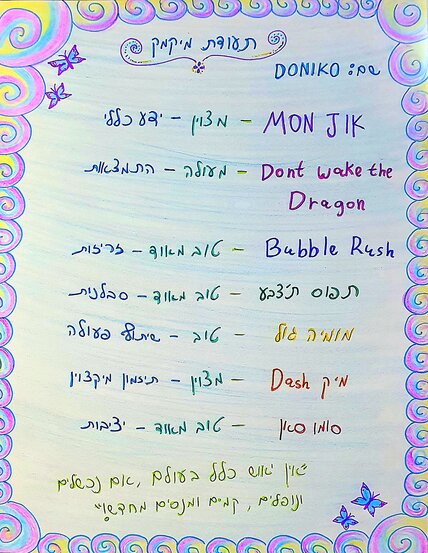 תעודת מיקמק
שם: DONIKO
MON JIK – מצוין – ידע כללי
Dont wake the – מעולה – התמצאות
Dragon
Bubble Rush – טוב מאוד – זריזות
תפוס ת'צבע – טוב מאוד – סבלנות
מומיה גול – טוב – שיתוף פעולה
מיק Dash – מצוין – תיזמון מיקצוין
סומו סאן – טוב מאוד – יציבות
"אין יאוש כלל בעולם, אם נכשלים
ונופלים, קמים ומנסים מחדש!"